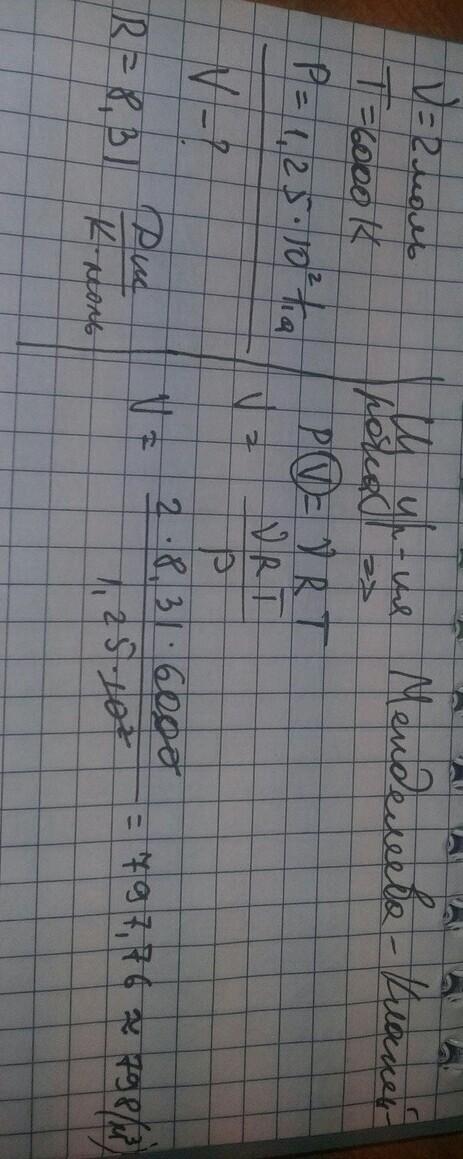 ν = 2 моль
T = 6000 K
P = 1,25 · 10² Па
V - ?
R = 8,31 Дж / К·моль
Из ур-ия Менделеева - Клапей-
рона =>
PV = νRT
V = νRT / P
V = 2 · 8,31 · 6000 / 1,25 · 10² = 797,76 ≈ 798 (м³)